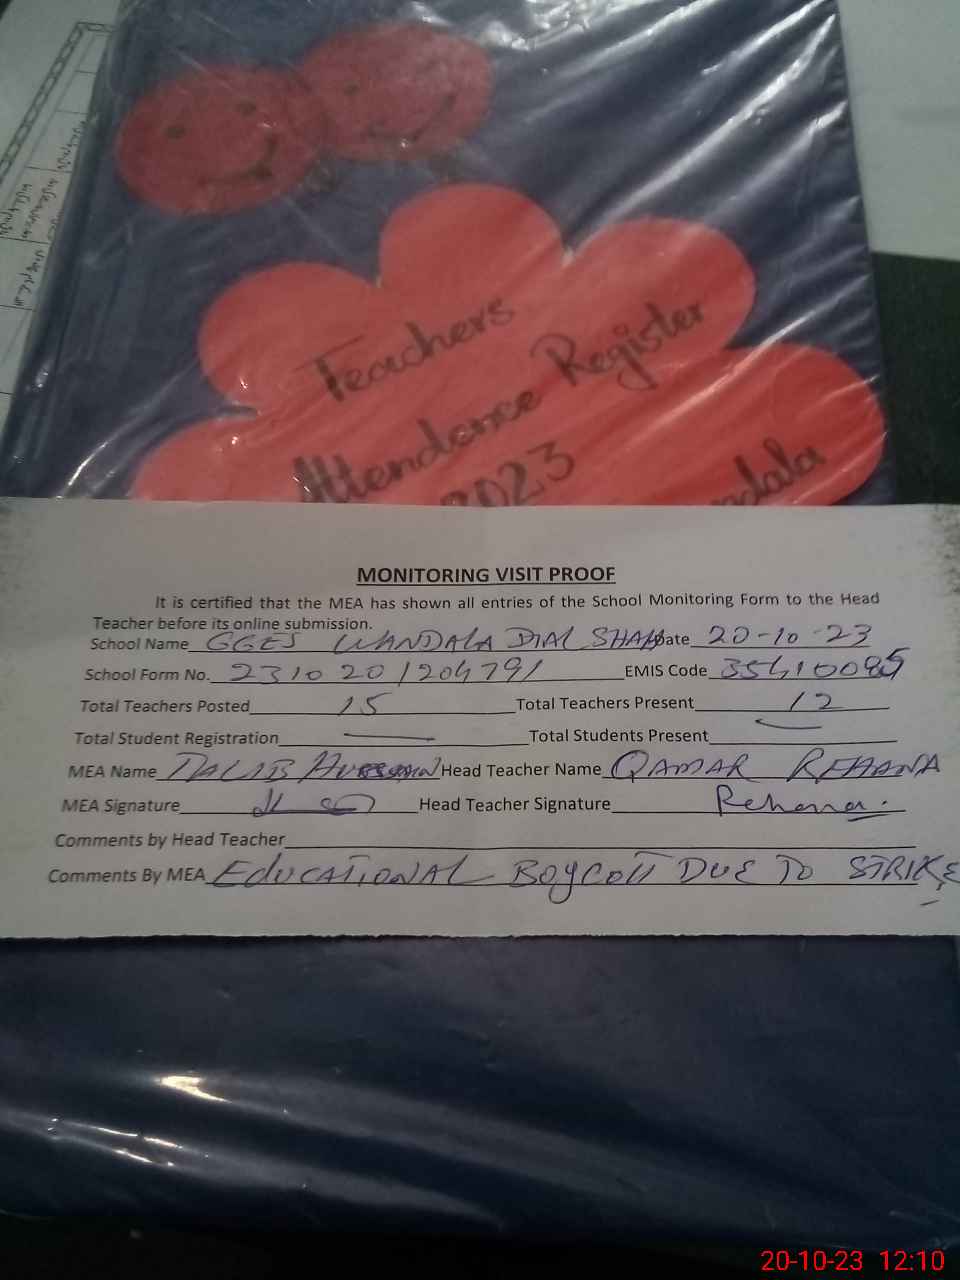 Teachers
Attendance Register
2023
ndala
MONITORING VISIT PROOF
It is certified that the MEA has shown all entries of the School Monitoring Form to the Head
Teacher before its online submission.
School Name GGES WANDALA DIAL SHAH Date 20-10-23
School Form No. 2310201204791 EMIS Code
Total Teachers Posted 15 Total Teachers Present 12
Total Student Registration — Total Students Present —
MEA Name Head Teacher Name QAMAR REHANA
MEA Signature Head Teacher Signature Rehana.
Comments by Head Teacher
Comments By MEA EDUCATIONAL BOYCOTT DUE TO STRIKE
20-10-23 12:10